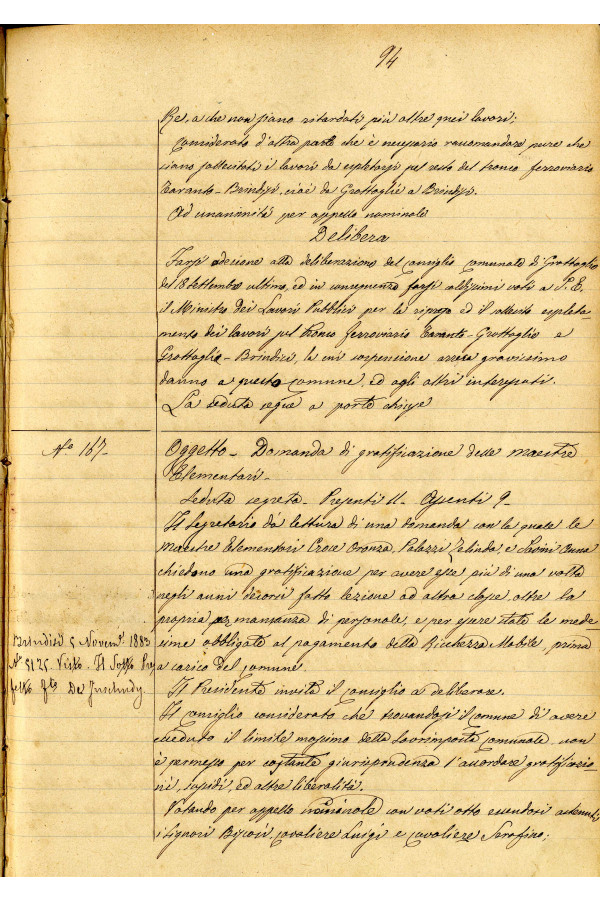 94
Re, a che non siano ritardati più oltre quei lavori;
Considerato d'altra parte che è necessario raccomandare pure che
siano sollecitati i lavori da espletarsi pel resto del tronco ferroviario
Taranto-Brindisi, cioè da Grottaglie a Brindisi.
Ad unanimità per appello nominale
Delibera
Farsi adesione alla deliberazione del Consiglio Comunale di Grottaglie
del 18 Settembre ultimo, ed in conseguenza farsi caldissimi voti a S. E.
il Ministro dei Lavori Pubblici per la ripresa ed il sollecito espleta-
mento dei lavori sul tronco ferroviario Taranto-Grottaglie e
Grottaglie-Brindisi, la cui sospensione arreca gravissimo
danno a questo Comune, ed agli altri interessati.
La seduta segue a porte chiuse
N.º 167-
Oggetto - Domanda di gratificazione delle maestre
Elementari-
Seduta segreta - Presenti 11 - Assenti 9-
Il Segretario dà lettura di una domanda con la quale le
maestre Elementari Croce Oronza, Palazzi Zelinda, e Savini Anna
chiedono una gratificazione per avere esse più di una volta
negli anni decorsi fatto lezione ad altra classe, oltre la
propria per mancanza di personale, e per essere state le mede-
sime obbligate al pagamento della Ricchezza Mobile, prima
a carico del Comune.
Brindisi 5 Novem. 1883
N.º 5125 Visto. Il Sotto Pre
fetto f.to De
Il Presidente invita il Consiglio a deliberare.
Il Consiglio considerato che trovandosi il Comune di avere
ecceduto il limite massimo della Sovrimposta Comunale, non
è permesso per costante giurisprudenza l'accordare gratificazio-
ni, sussidi, ed altre liberalità.
Votando per appello nominale con voti otto essendosi astenuti
i signori cavaliere Luigi e cavaliere Serafino;